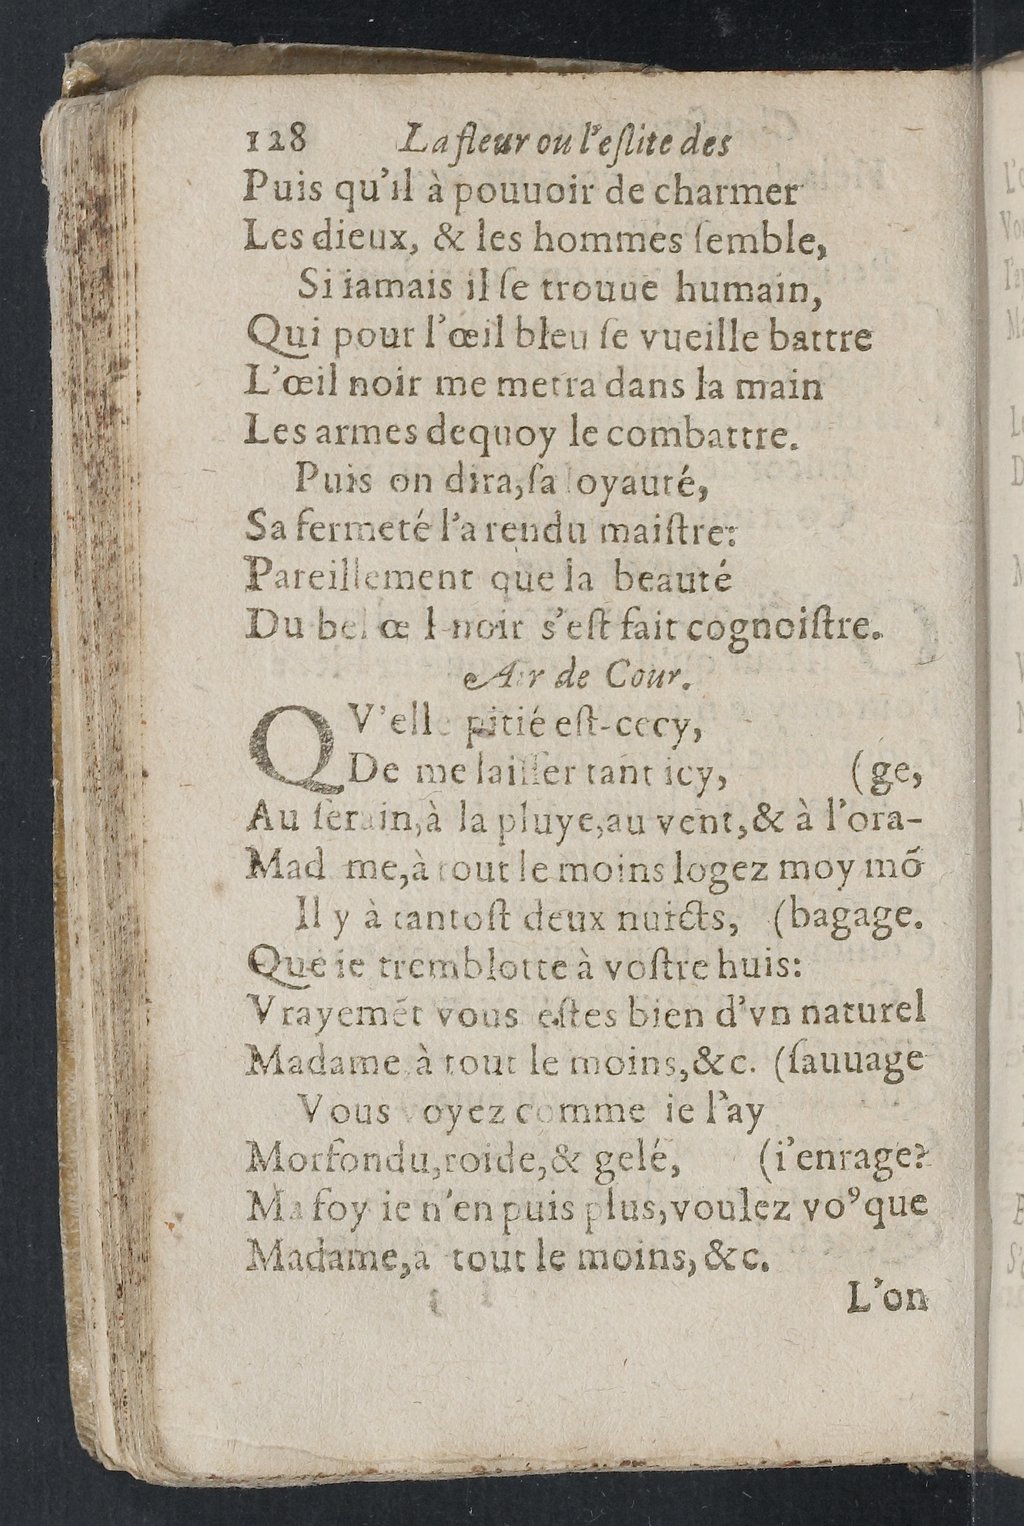 128 La fleur ou l'eſlite des
Puis qu'il à pouuoir de charmer
Les dieux, & les hommes ſemble,
Si iamais il ſe trouue humain,
Qui pour l'œil bleu ſe vueille battre
L'œil noir me metra dans la main
Les armes dequoy le combattre.
Puis on dira, ſa loyauté,
Sa fermeté l'a rendu maiſtre:
Pareillement que la beauté
Du bel œil noir s'eſt fait cognoiſtre.
Air de Cour.
QV'elle pitié eſt-cecy,
De me laiſſer tant icy, (ge,
Au ſerain, à la pluye, au vent, & à l'ora-
Madame, à tout le moins logez moy mõ
Il y à tantoſt deux nuicts, (bagage.
Que ie tremblotte à voſtre huis:
Vrayemẽt vous eſtes bien d'vn naturel
Madame à tout le moins, &c. (ſauuage
Vous voyez comme ie l'ay
Morfondu, roide, & gelé, (i'enrage?
Ma foy ie n'en puis plus, voulez voꝰ que
Madame, a tout le moins, &c.
L'on